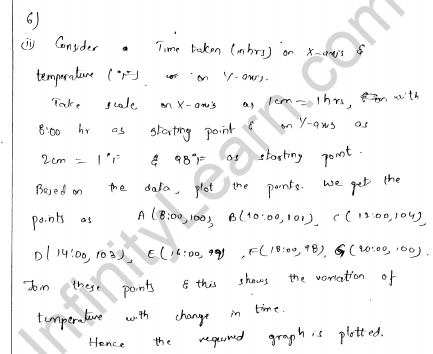 6)
(ii) Consider Time taken (in hrs) on X-axis &
temperature (°F) on Y-axis.
Take scale on X-axis as 1cm = 1hrs, with
8:00 hr as starting point & on Y-axis as
2cm = 1°F & 98°F as starting point.
Based on the data, plot the points. we get the
points as A(8:00,100), B(10:00,101), C(12:00,104),
D(14:00,103), E(16:00,99), F(18:00,98), G(20:00,100).
Join these points & this shows the variation of
temperature with change in time.
Hence the required graph is plotted.
InfinityLearn.com